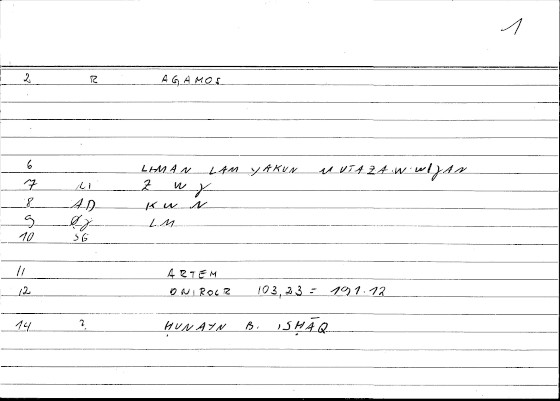 1
2 R AGAMOS
6 LIMAN LAM YAKUN MUTAZAWWIJAN
7 LI Z W J
8 AD K W N
9 ØJ LM
10 SG
11 ARTEM
12 ONIROCR 103,23 = 191.12
14 ? ḤUNAYN B. ISḤĀQ